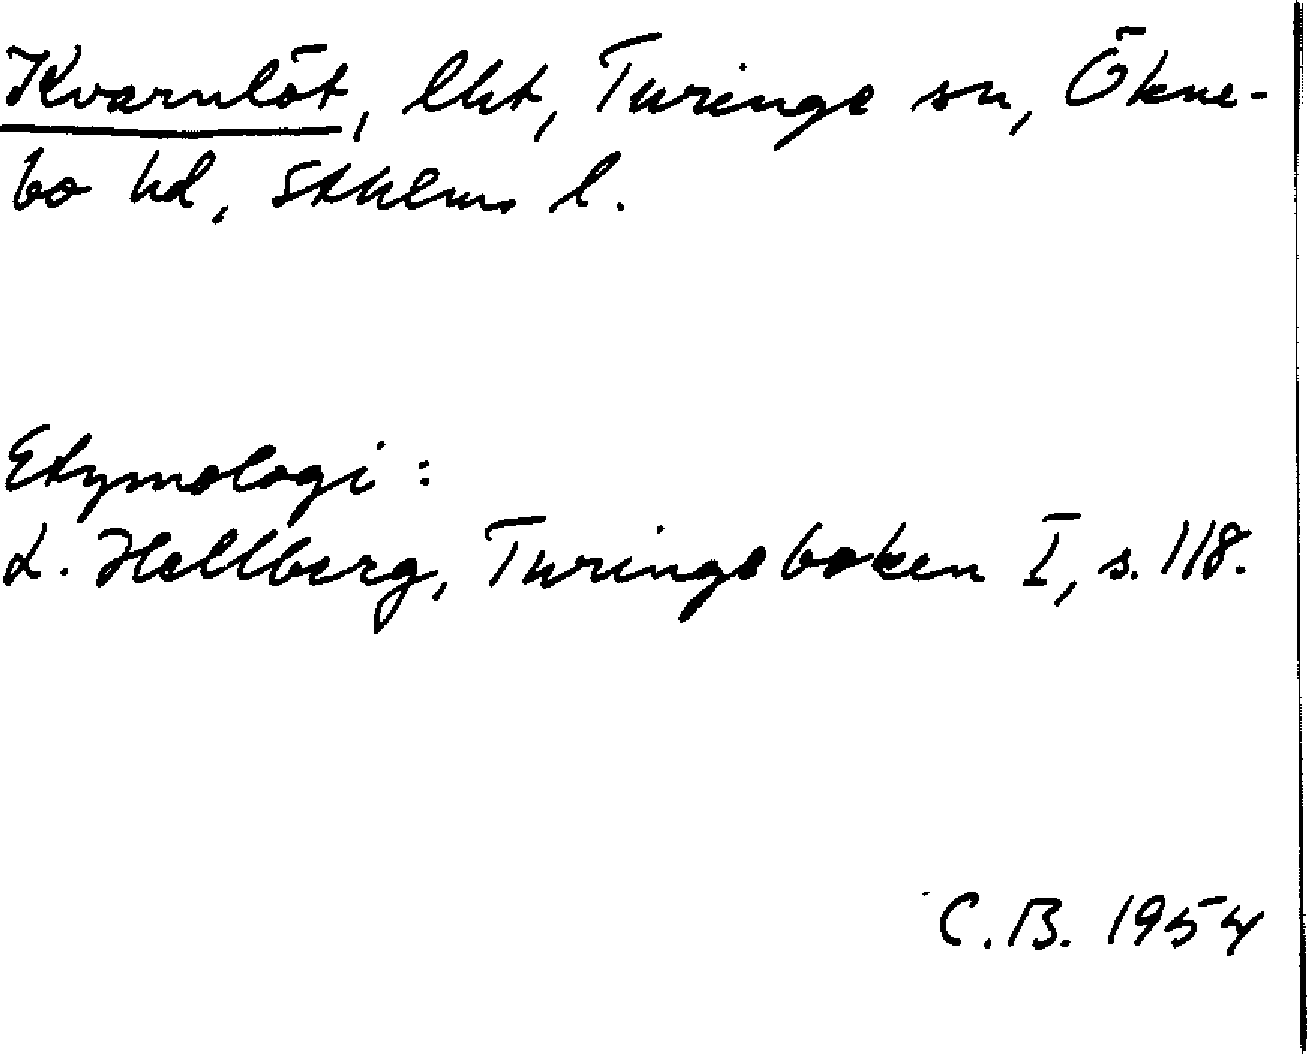 Kvarnlöt, lht, Turinge sn, Ökne-
bo hd, Sthlms l.
Etymologi:
L. Hellberg, Turingeboken I, s. 118.
C.B. 1954